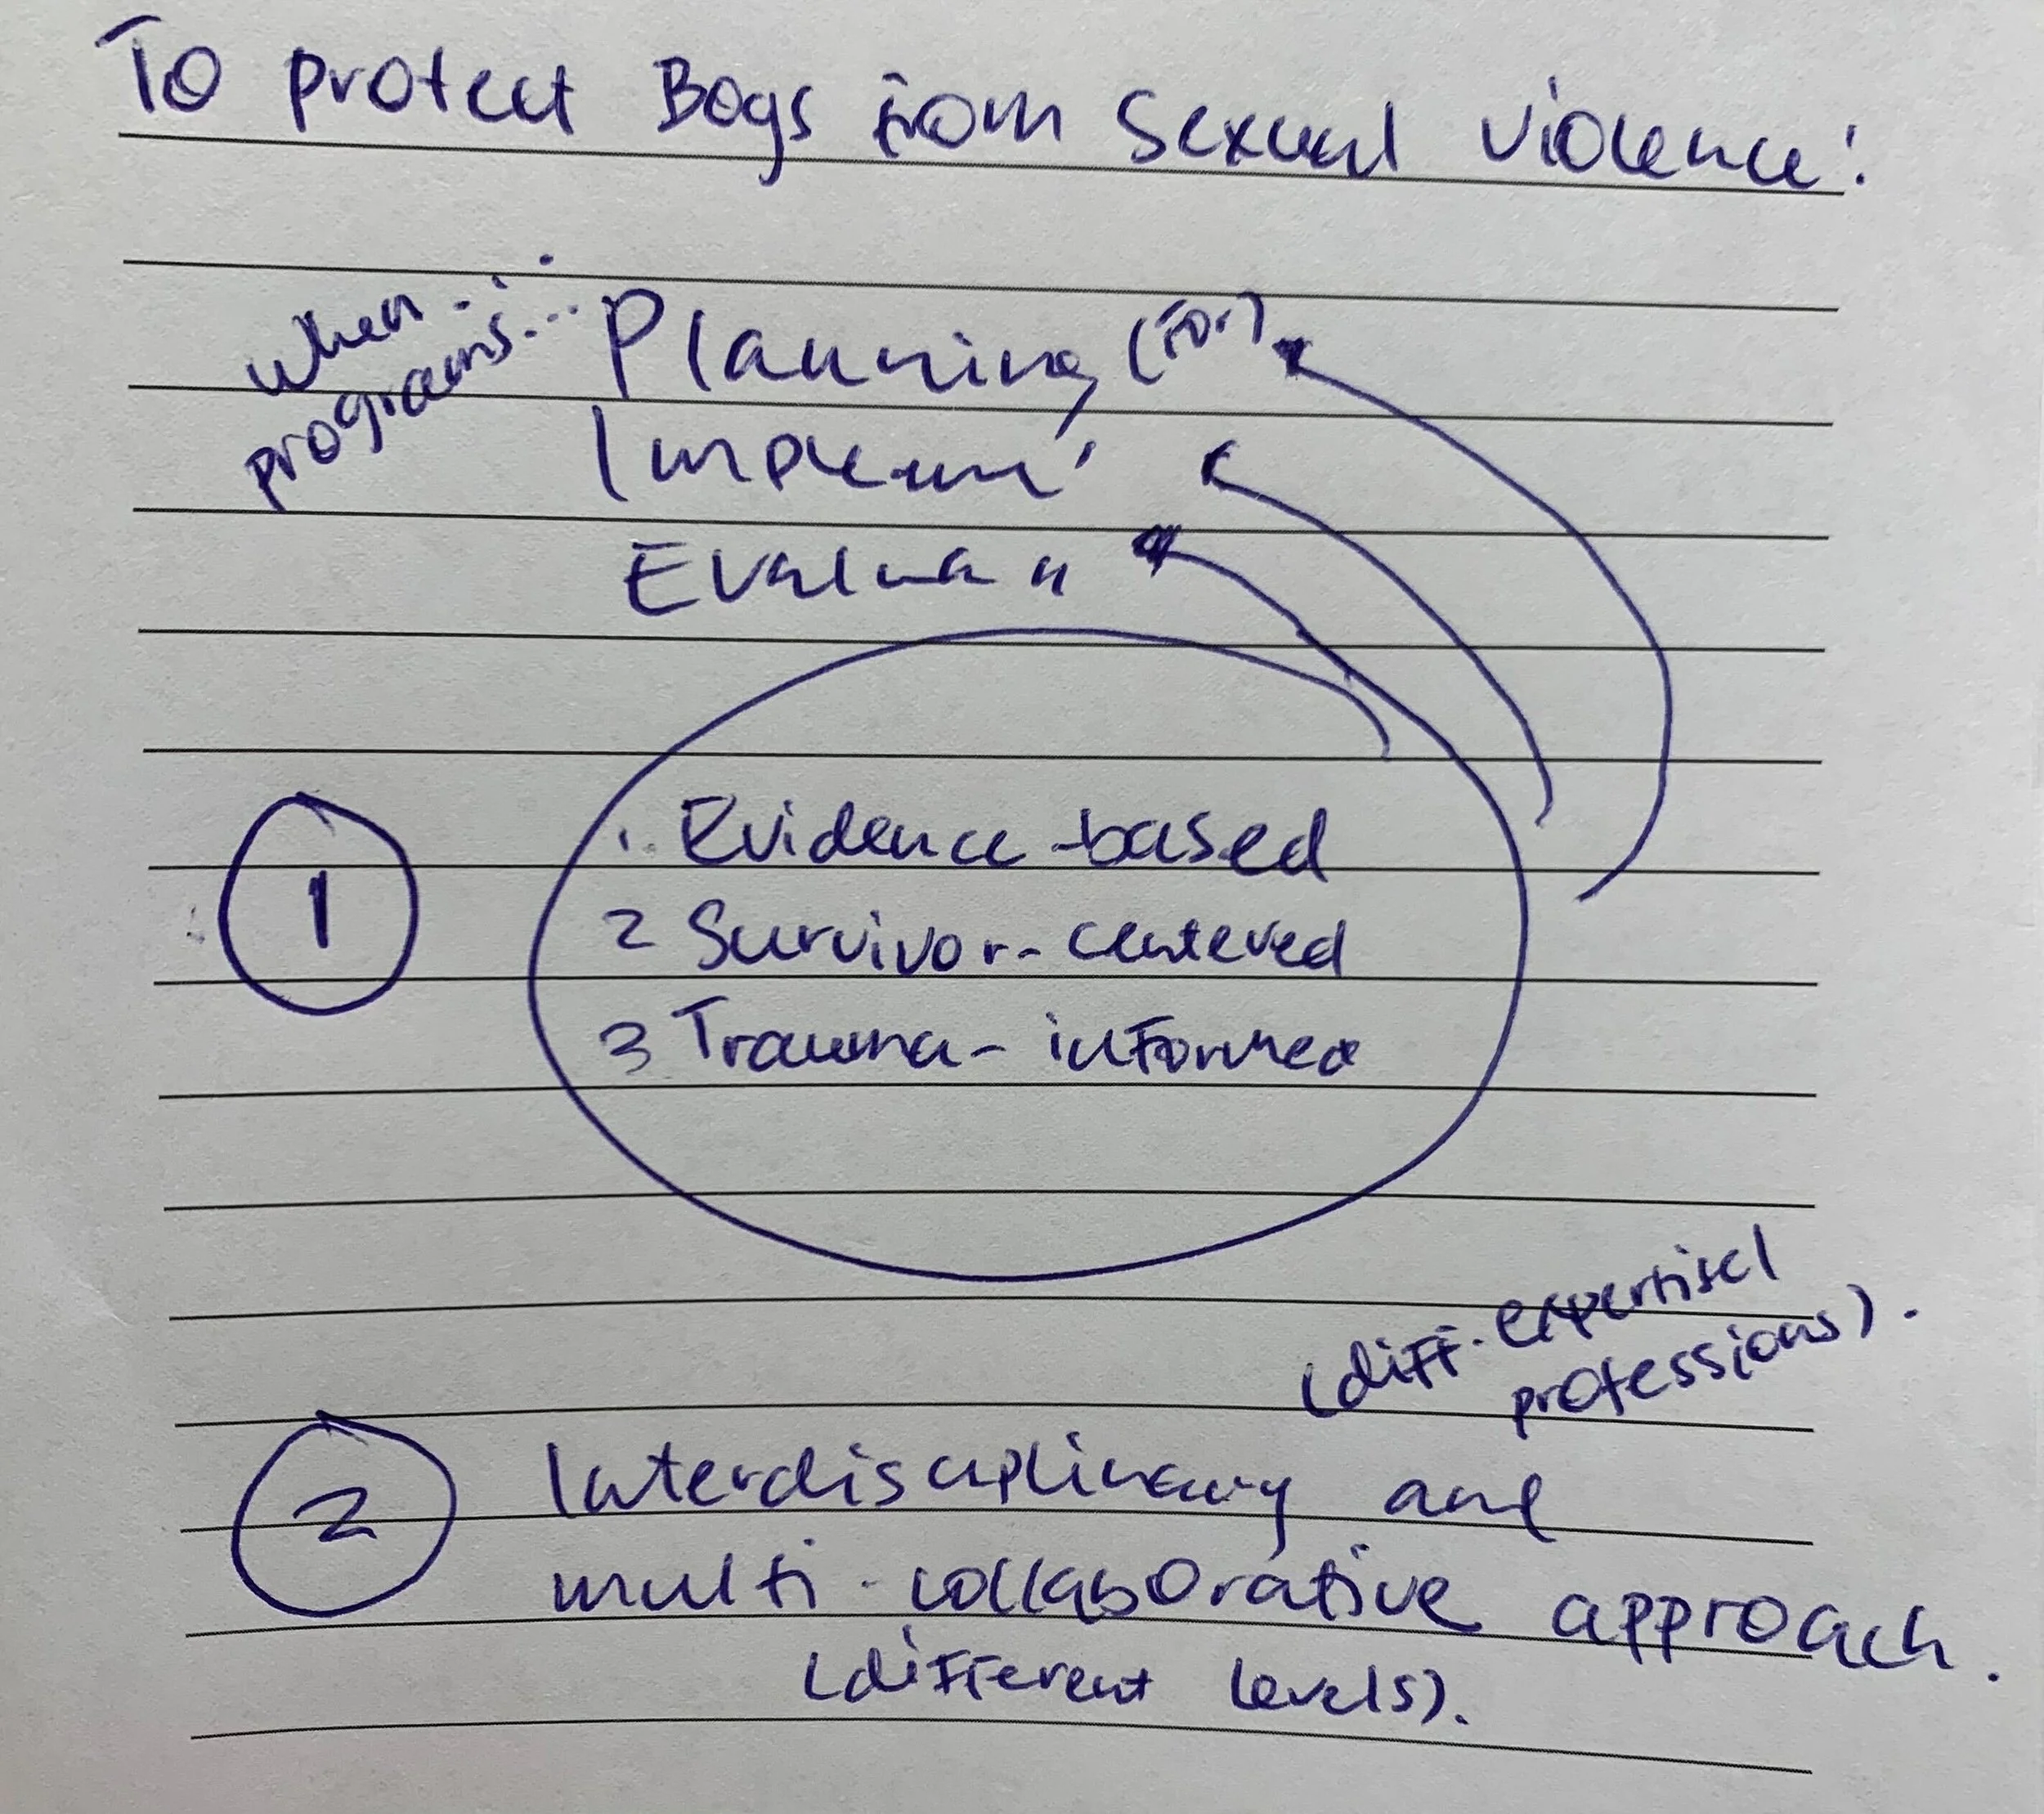 To protect Boys from Sexual violence:
when...
programs...
Planning (for)
Implem'
Evalua "
1
1. Evidence-based
2 Survivor-centered
3 Trauma-informed
(diff. expertise/
professions).
2
Interdisciplinary and
multi-collaborative approach.
(different levels).